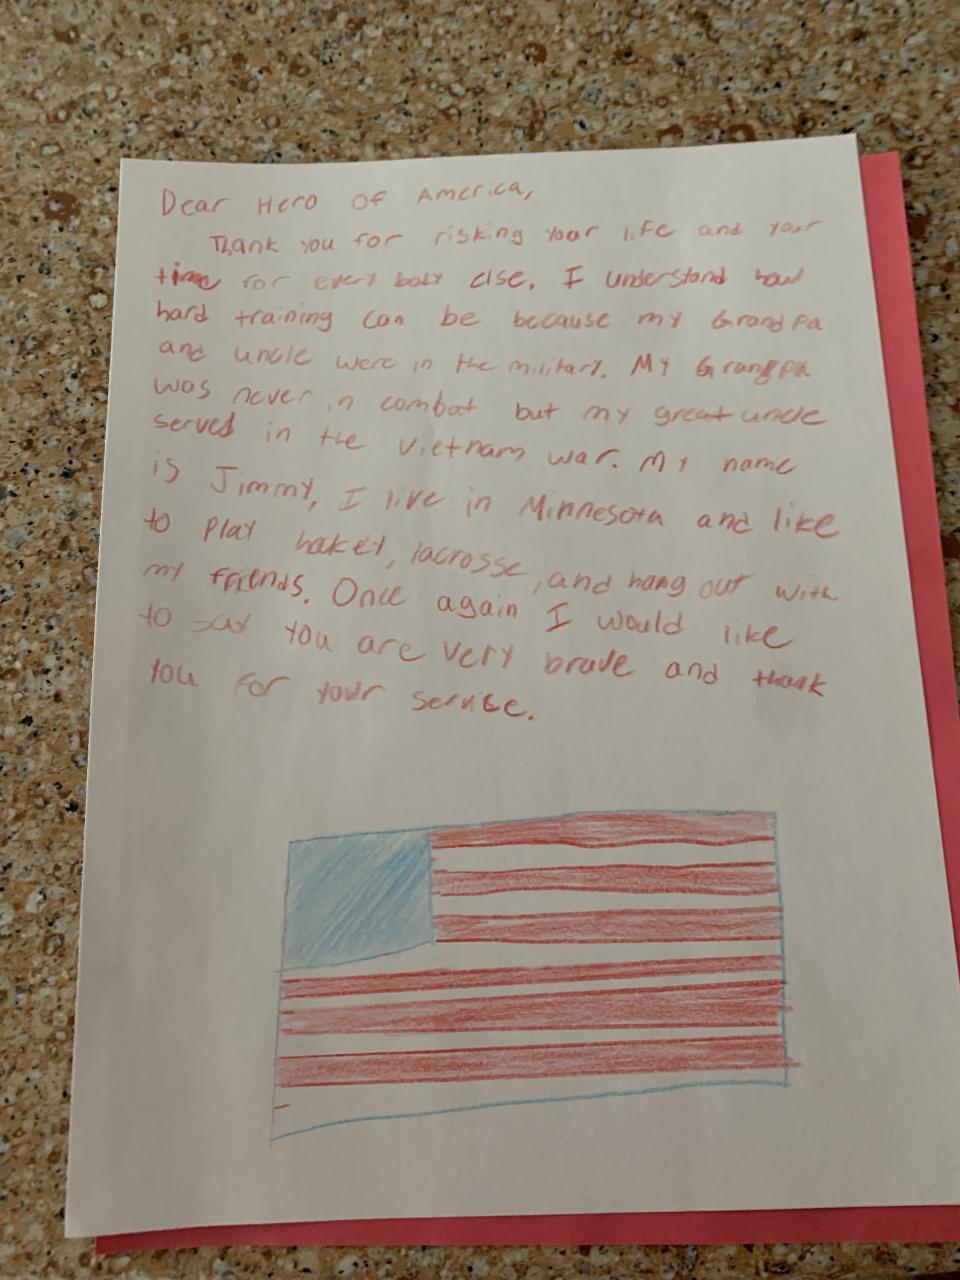 Dear Hero of America,
Thank you for risking your life and your
time for every body else. I understand how
hard training can be because my Grandpa
and uncle were in the military. My Grangpa
was never in combat but my great uncle
served in the Vietnam war. My name
is Jimmy, I live in Minnesota and like
to play hakey, lacrosse, and hang out with
my friends. Once again I would like
to say you are very brave and thank
you for your service.